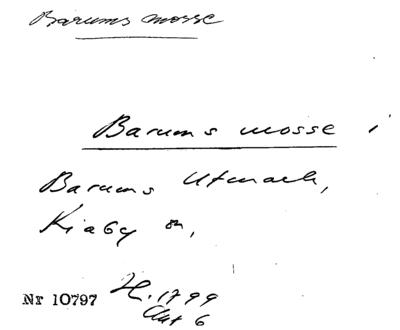 Barums mosse
Barums mosse i
Barums Utmark,
Kiaby sn,
Nr 10797 H. 1799
Akt 6